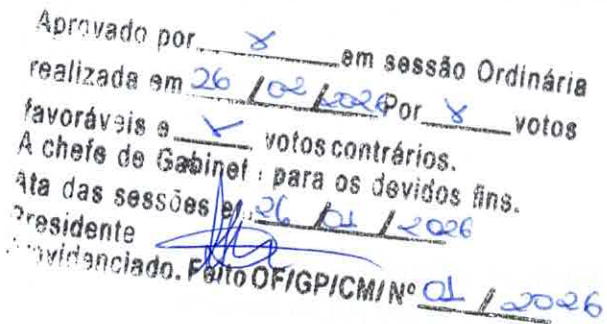 Aprovado por 8 em sessão Ordinária
realizada em 26 / 02 / 2026 Por 8 votos
favoráveis e votos contrários.
A chefe de Gabinet : para os devidos fins.
Ata das sessões e 26 / 01 / 2026
Presidente
Providenciado. Feito OF/GP/CM/Nº 01 / 2026